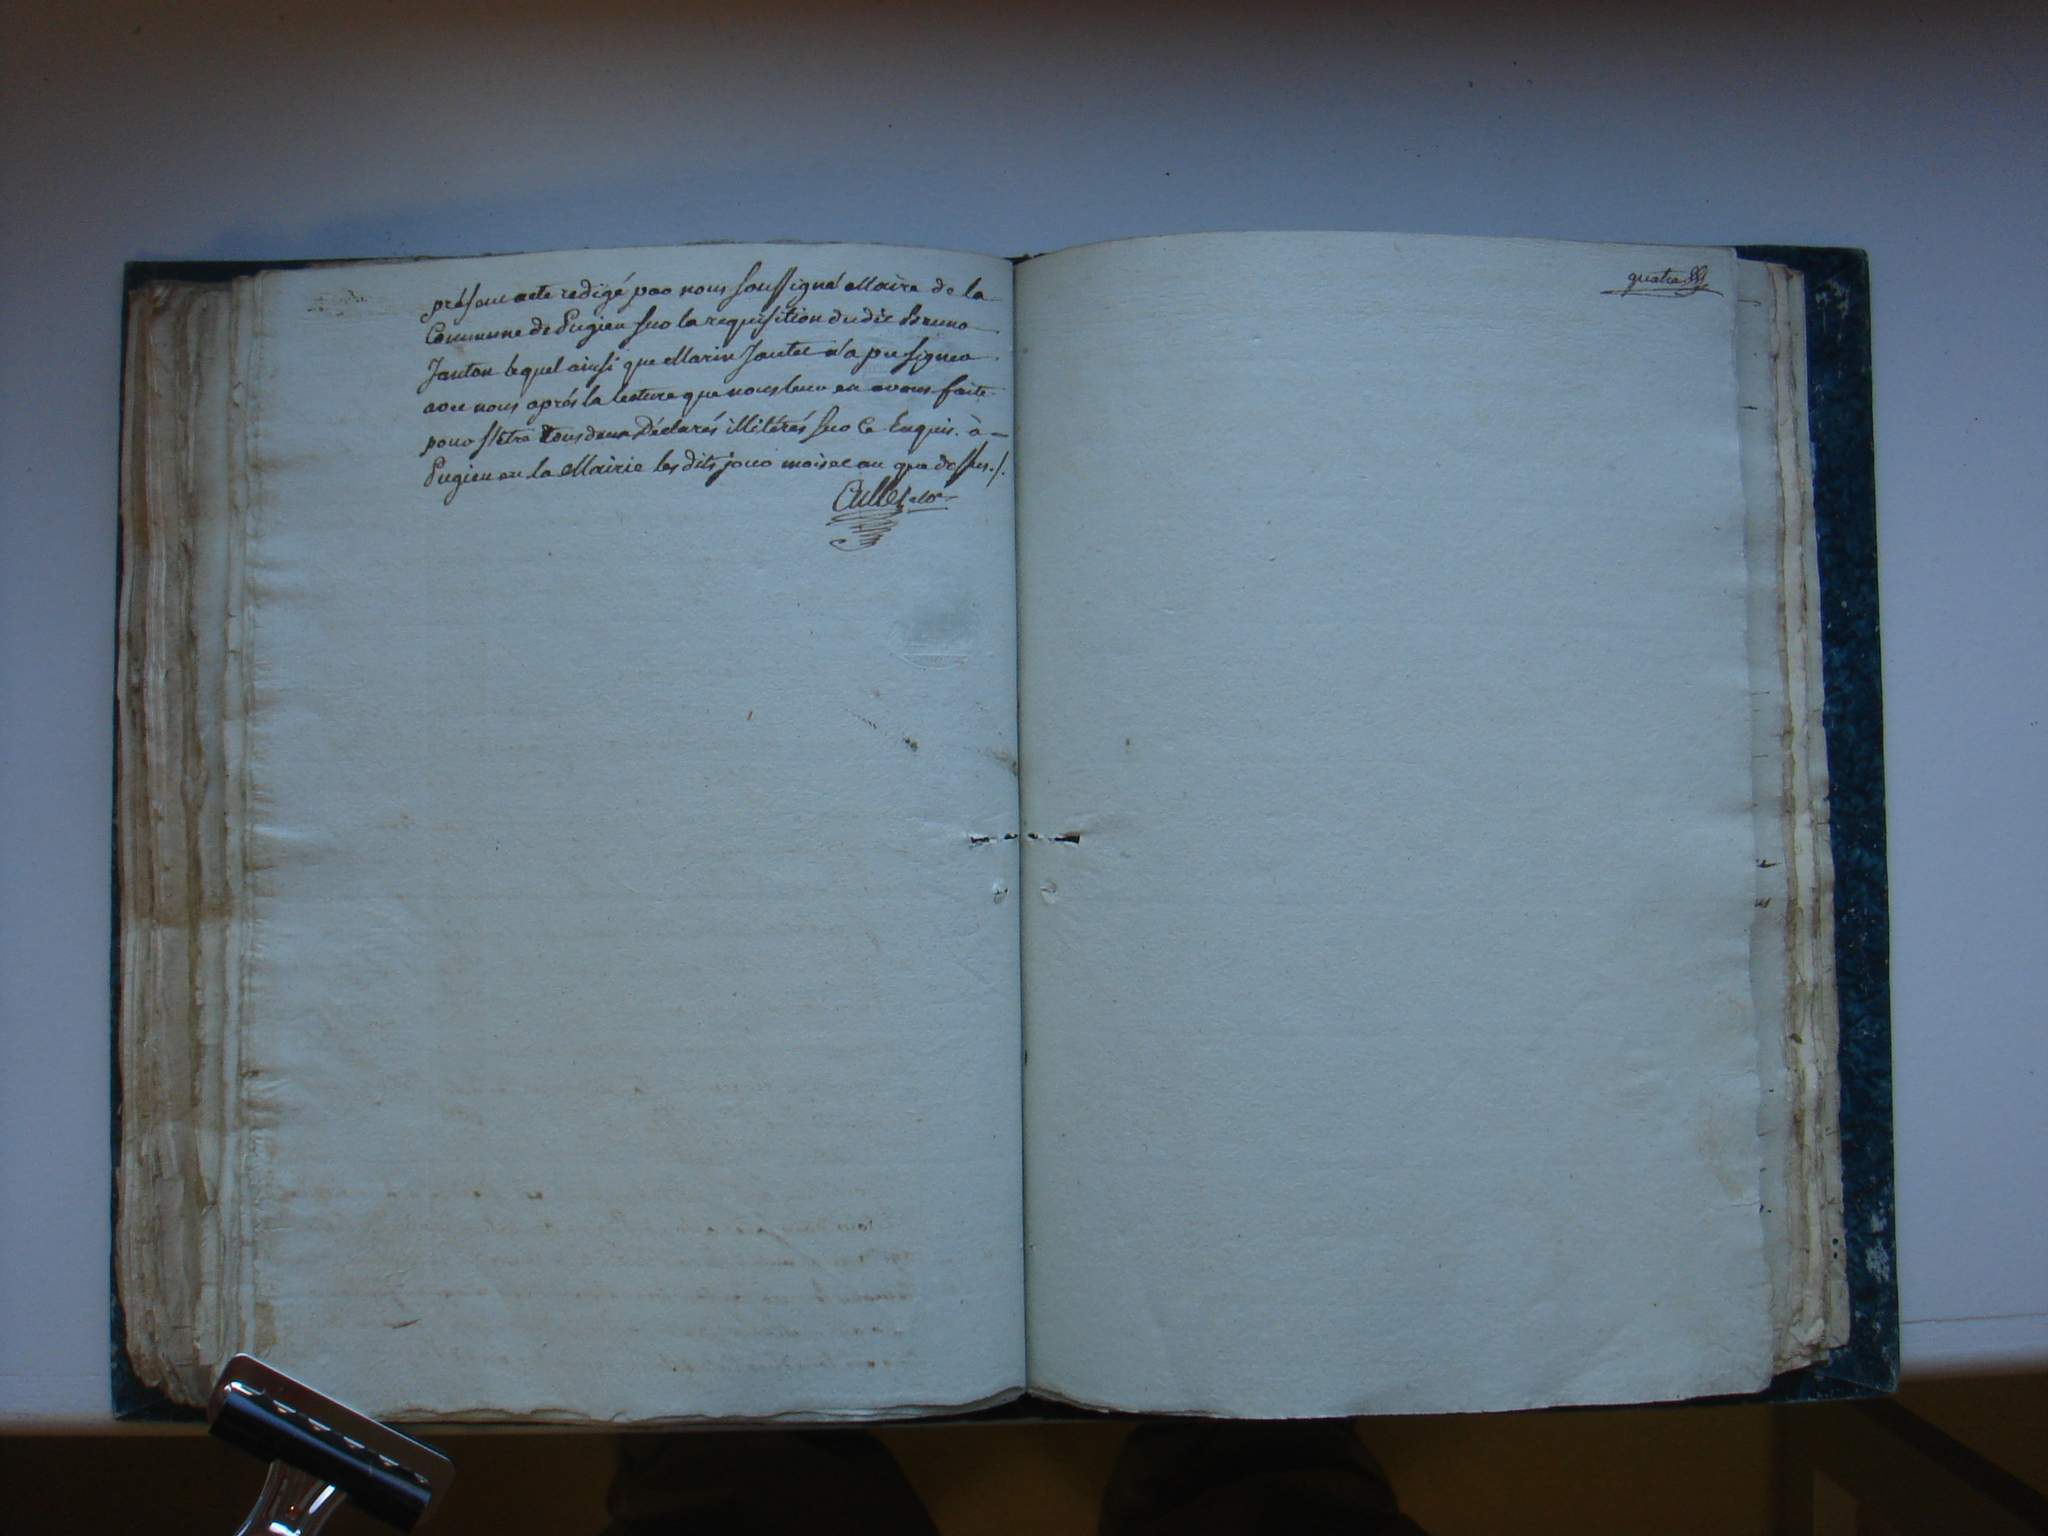 présent acte redigé par nous soussigné Maire de la
Commune de Pugieu sur la requisition dudit Bruno
Janton lequel ainsi que Marin Jantet n'a pu signer
avec nous après la lecture que nous leur en avons faite
pour s'être tous deux Déclarés illitérés sur ce Enquis. à
Pugieu en la Mairie les dits jour mois et an que dessus./.
quatre